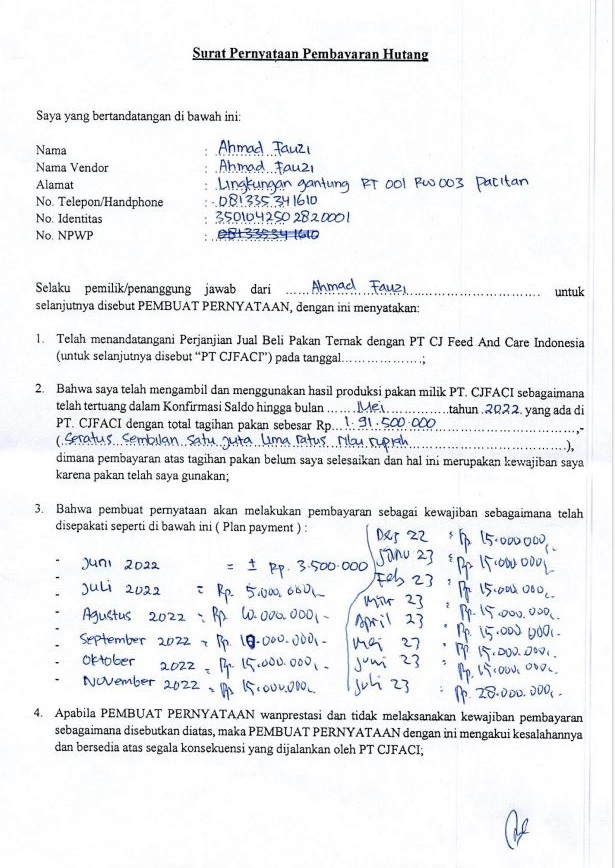 Surat Pernyataan Pembayaran Hutang
Saya yang bertandatangan di bawah ini:
Nama : Ahmad Fauzi
Nama Vendor : Ahmad Fauzi
Alamat : Lingkungan gantung RT 001 RW 003 Pacitan
No. Telepon/Handphone : 081335341610
No. Identitas : 3501042502820001
No. NPWP : 081335341610
Selaku pemilik/penanggung jawab dari ...... Ahmad Fauzi ...... untuk
selanjutnya disebut PEMBUAT PERNYATAAN, dengan ini menyatakan:
1. Telah menandatangani Perjanjian Jual Beli Pakan Ternak dengan PT CJ Feed And Care Indonesia
(untuk selanjutnya disebut “PT CJFACI”) pada tanggal......................;
2. Bahwa saya telah mengambil dan menggunakan hasil produksi pakan milik PT. CJFACI sebagaimana
telah tertuang dalam Konfirmasi Saldo hingga bulan ...... Mei ...... tahun 2022 yang ada di
PT. CJFACI dengan total tagihan pakan sebesar Rp... 1.91.500.000 ......,-
(Seratus Sembilan Satu Juta Lima Ratus Ribu rupiah......),
dimana pembayaran atas tagihan pakan belum saya selesaikan dan hal ini merupakan kewajiban saya
karena pakan telah saya gunakan;
3. Bahwa pembuat pernyataan akan melakukan pembayaran sebagai kewajiban sebagaimana telah
disepakati seperti di bawah ini ( Plan payment ) :
- Juni 2022 = ± Rp. 3.500.000
- Juli 2022 = Rp. 5.000.000,-
- Agustus 2022 = Rp 10.000.000,-
- September 2022 = Rp. 10.000.000,-
- Oktober 2022 = Rp. 15.000.000,-
- November 2022 = Rp 15.000.000,-
Des 22 : Rp 15.000.000,-
Janu 23 : Rp 15.000.000,-
Feb 23 : Rp 15.000.000,-
Mar 23 : Rp. 15.000.000,-
April 23 : Rp. 15.000.000,-
Mei 23 : Rp 15.000.000,-
Juni 23 : Rp. 15.000.000,-
Juli 23 : Rp. 28.000.000,-
4. Apabila PEMBUAT PERNYATAAN wanprestasi dan tidak melaksanakan kewajiban pembayaran
sebagaimana disebutkan diatas, maka PEMBUAT PERNYATAAN dengan ini mengakui kesalahannya
dan bersedia atas segala konsekuensi yang dijalankan oleh PT CJFACI;